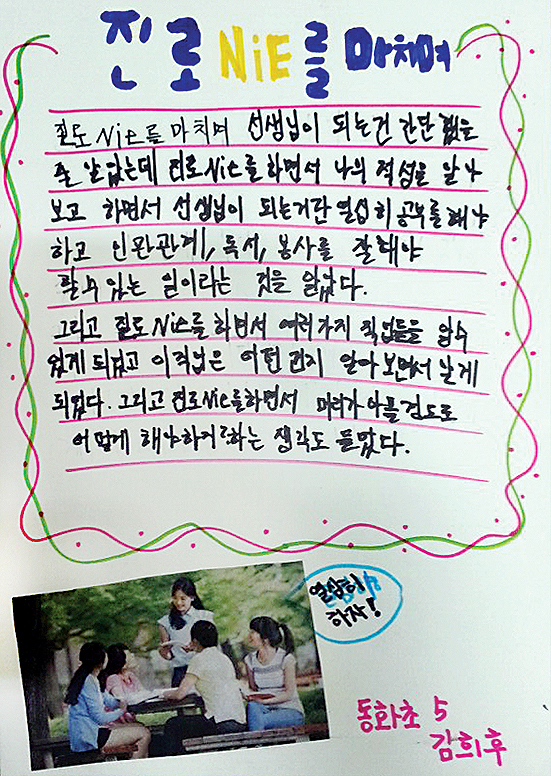 진로 NiE를 마치며
진로 Nie를 마치며 선생님이 되는건 간단했을
줄 알았는데 진로Nie를 하면서 나의 적성을 알아
보고 하면서 선생님이 되는거란 열심히 공부를 해야
하고 인완관계, 독서, 봉사를 잘해야
할수 있는 일이라는 것을 알았다.
그리고 진로Nie를 하면서 여러가지 직업들을 알수
있게 되었고 이직업은 어떤건지 알아보면서 알게
되었다. 그리고 진로Nie를하면서 머리가 아플 정도로
어떻게 해야하지?하는 생각도 들었다.
열심히
하자!
동화초 5
김희후